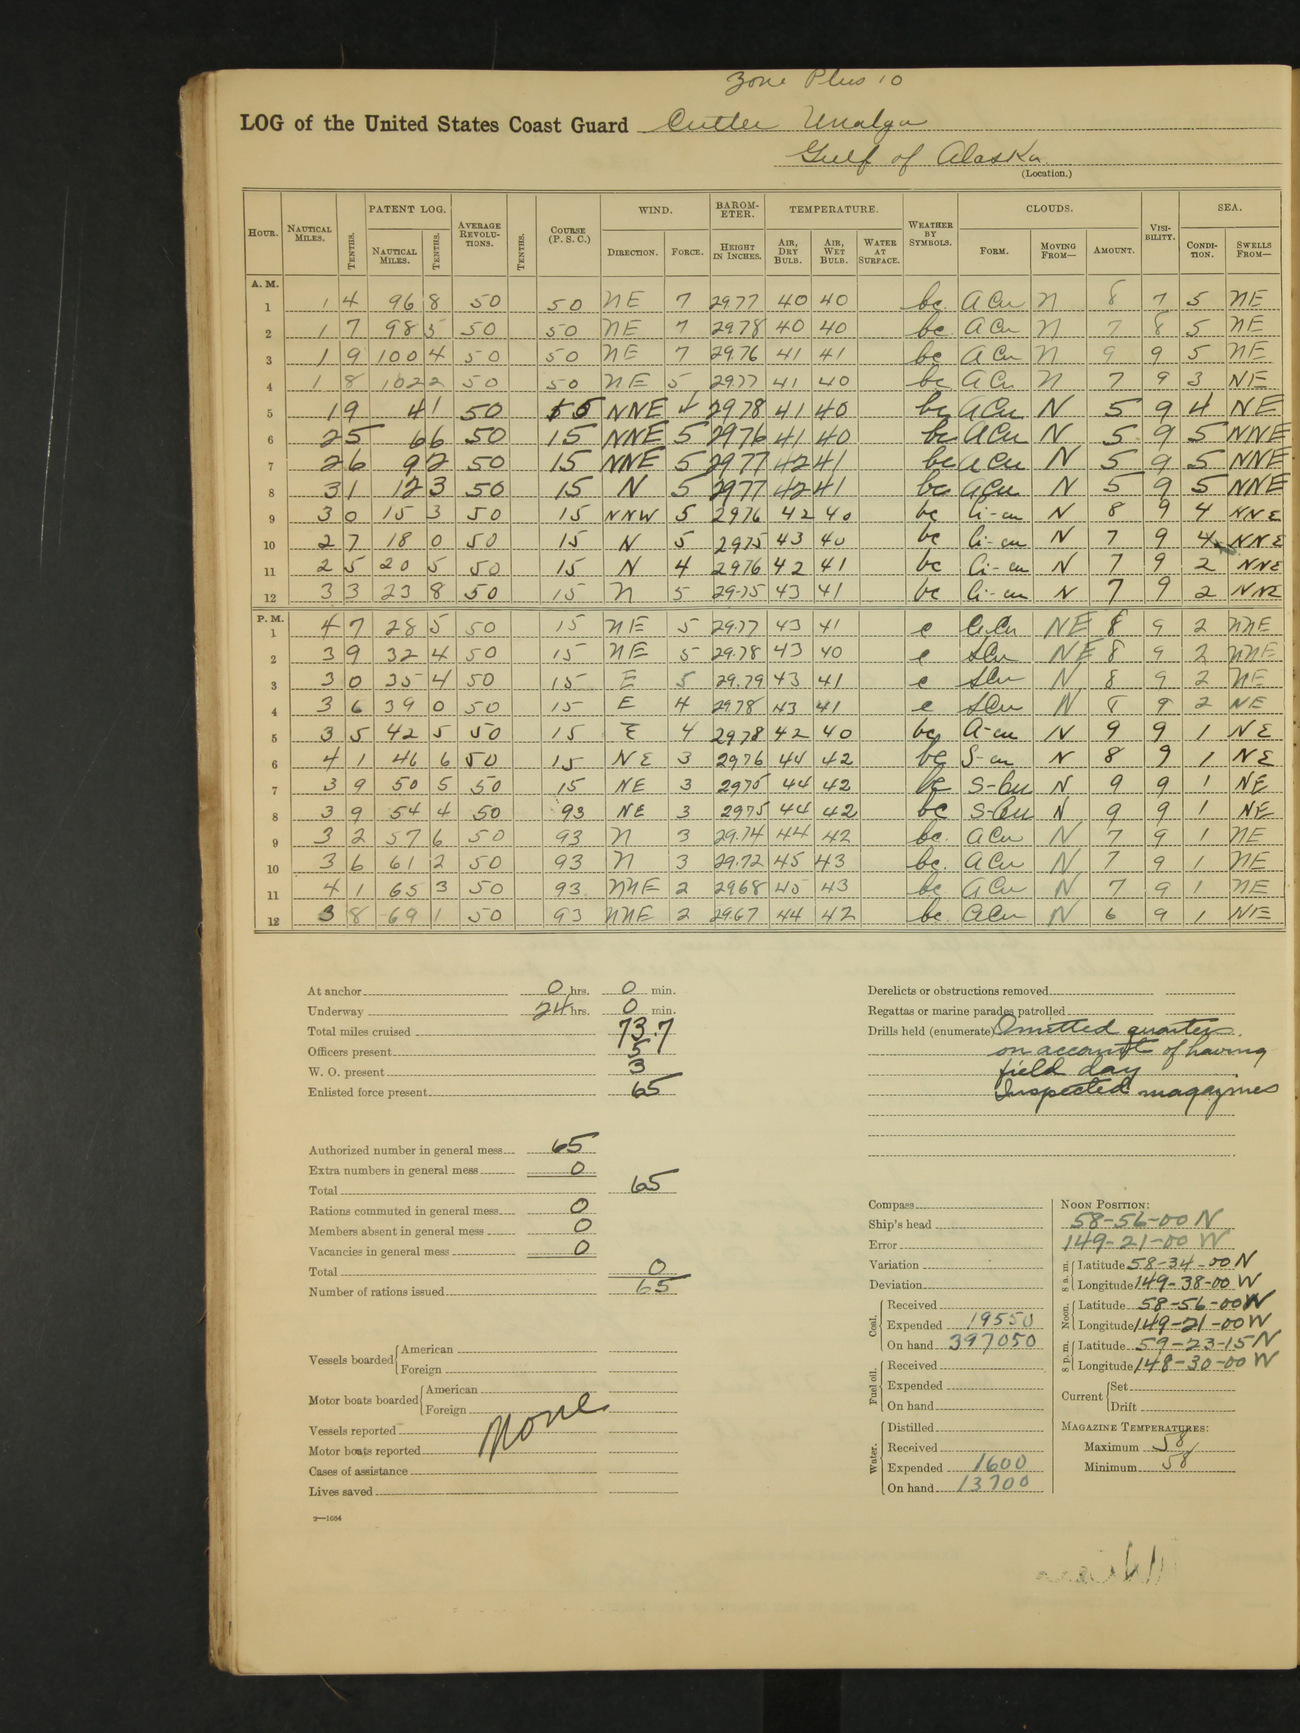 Zone Plus 10
LOG of the United States Coast Guard Cutter Unalga
Gulf of Alaska
(Location.)
HOUR. NAUTICAL MILES. TENTHS. PATENT LOG. NAUTICAL MILES. TENTHS. AVERAGE REVOLUTIONS. TENTHS. COURSE (P. S. C.) WIND. DIRECTION. FORCE. BAROMETER. HEIGHT IN INCHES. TEMPERATURE. AIR, DRY BULB. AIR, WET BULB. WATER AT SURFACE. WEATHER BY SYMBOLS. CLOUDS. FORM. MOVING FROM— AMOUNT. VISIBILITY. SEA. CONDITION. SWELLS FROM—
A. M.
1 1 4 96 8 50 50 NE 7 29.77 40 40 bc A Cu N 8 7 5 NE
2 1 7 98 5 50 50 NE 7 29.78 40 40 bc A Cu N 7 8 5 NE
3 1 9 100 4 50 50 NE 7 29.76 41 41 bc A Cu N 9 9 5 NE
4 1 8 102 2 50 50 NE 5 29.77 41 40 bc A Cu N 7 9 3 NE
5 1 9 4 1 50 NNE 4 2978 41 40 bc A Cu N 5 9 4 NE
6 2 5 6 6 50 15 NNE 5 2976 41 40 bc A Cu N 5 9 5 NNE
7 2 6 9 2 50 15 NNE 5 2977 42 41 bc A Cu N 5 9 5 NNE
8 3 1 12 3 50 15 N 5 2977 42 41 bc A Cu N 5 9 5 NNE
9 3 0 15 3 50 15 NNW 5 2976 42 40 bc Ci-cu N 8 9 4 NNE
10 2 7 18 0 50 15 N 5 2975 43 40 bc Ci-cu N 7 9 4 NNE
11 2 5 20 5 50 15 N 4 2976 42 41 bc Ci-cu N 7 9 2 NNE
12 3 3 23 8 50 15 N 5 29.75 43 41 bc Ci-cu N 7 9 2 NNE
P. M.
1 4 7 28 5 50 15 NE 5 29.77 43 41 c CiCu NE 8 9 2 NNE
2 3 9 32 4 50 15 NE 5 29.78 43 40 c SCu NE 8 9 2 NNE
3 3 0 35 4 50 15 E 5 29.79 43 41 c SCu N 8 9 2 NE
4 3 6 39 0 50 15 E 4 29.78 43 41 c SCu N 8 9 2 NE
5 3 5 42 5 50 15 E 4 2978 42 40 bc A-cu N 9 9 1 NE
6 4 1 46 6 50 15 NE 3 2976 44 42 bc S-cu N 8 9 1 NE
7 3 9 50 5 50 15 NE 3 2975 44 42 bc S-Cu N 9 9 1 NE
8 3 9 54 4 50 93 NE 3 2975 44 42 bc S-Cu N 9 9 1 NE
9 3 2 57 6 50 93 N 3 29.74 44 42 bc. A Cu N 7 9 1 NE
10 3 6 61 2 50 93 N 3 29.72 45 43 bc. A Cu N 7 9 1 NE
11 4 1 65 3 50 93 NNE 2 2968 45 43 bc A Cu N 7 9 1 NE
12 3 8 69 1 50 93 NNE 2 29.67 44 42 bc. A Cu N 6 9 1 NE
At anchor 0 hrs. 0 min.
Underway 24 hrs. 0 min.
Total miles cruised 73.7
Officers present 5
W. O. present 3
Enlisted force present 65
Authorized number in general mess 65
Extra numbers in general mess 0
Total 65
Rations commuted in general mess 0
Members absent in general mess 0
Vacancies in general mess 0
Total 0
Number of rations issued 65
Vessels boarded American
Foreign
Motor boats boarded American
Foreign
Vessels reported
None
Motor boats reported
Cases of assistance
Lives saved
2—1664
Derelicts or obstructions removed
Regattas or marine parades patrolled
Drills held (enumerate) Omitted quarters
on account of having
field day
Inspected magazines
Compass
Ship's head
Error
Variation
Deviation
Coal. Received
Expended 19550
On hand 397050
Fuel oil. Received
Expended
On hand
Water. Distilled
Received
Expended 1600
On hand 13700
NOON POSITION:
58-56-00 N
149-21-00 W
8 a. m. Latitude 58-34-00 N
Longitude 149-38-00 W
Noon. Latitude 58-56-00 W
Longitude 149-21-00 W
8 p. m. Latitude 59-23-15 N
Longitude 148-30-00 W
Current Set
Drift
MAGAZINE TEMPERATURES:
Maximum 58
Minimum 58